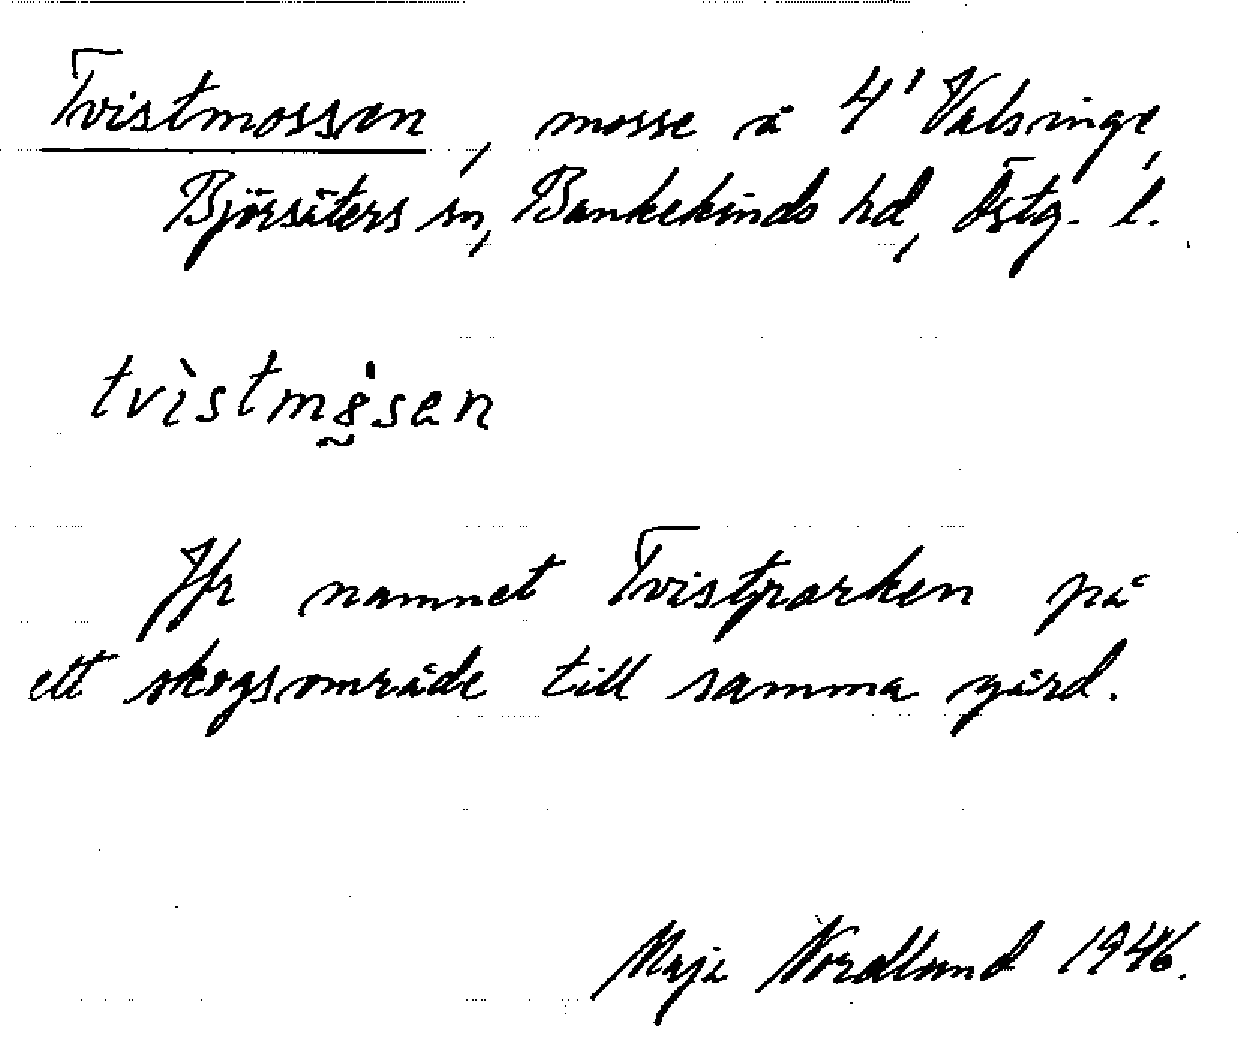 Tvistmossen, mosse å 4' Valsinge,
Björsäters sn, Bankekinds hd, Östg. l.
tvistmosen
Jfr namnet Tvistparken på
ett skogsområde till samma gård.
Maja Nordlund 1946.